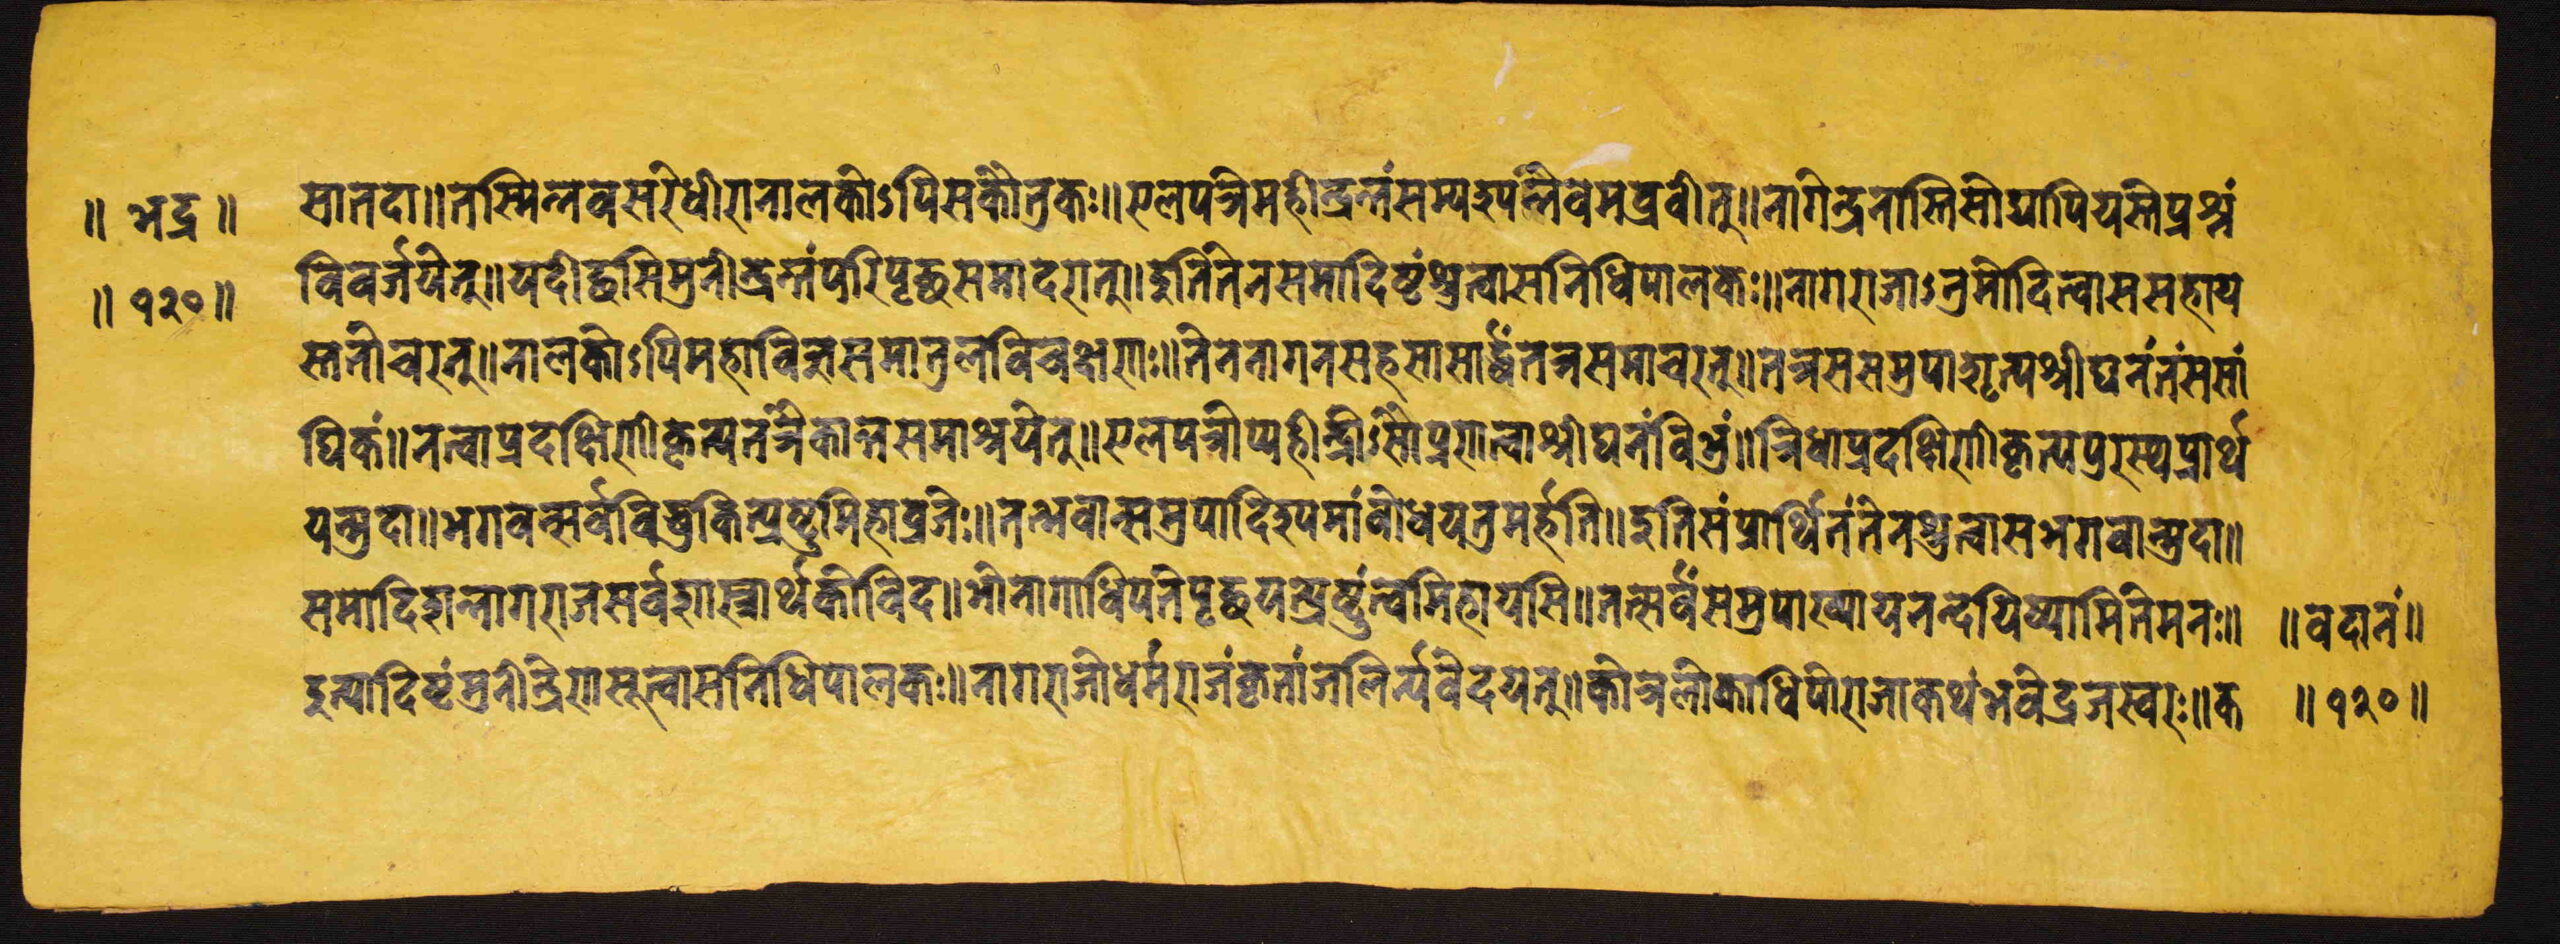 ॥ भद्र ॥ सा तदा॥ तस्मिन्नवसरे धीरो नालकोऽपि सकौतुकः॥ एलपत्रमहीन्द्रन्तं सम्यङ्पश्यन्नैवमब्रवीत्॥ नागेन्द्र नास्ति सोद्यापि यस्ते प्रश्नं
॥ १२० ॥ विवर्जयेत्॥ यदीच्छसि मुनीन्द्रन्तं परिपृच्छ समादरात्॥ इति तेन समादिष्टं श्रुत्वा स निधिपालकः॥ नागराजाऽनुमोदित्वा ससहाय
स्ततोचरत्॥ नालकोऽपि महाविज्ञ समातुलविचक्षणः॥ तेन नागेन सहसा सार्द्धं तत्र समाचरत्॥ तत्र स समुपाशृत्य श्रीघनं तं ससां
घिकं॥ नत्वा प्रदक्षिणीकृत्य तत्रैकान्त समाश्रयेत्॥ एलपत्रोप्यहीन्द्रोऽसौ प्रणत्वा श्रीघनं विभुं॥ त्रिधा प्रदक्षिणीकृत्य पुरस्थ प्रार्थ
यन्मुदा॥ भगवन्सर्वविद्युकिं प्रष्टुमिहाव्रजेः॥ तन्भवान्समुपादिश्य मां बोधयतुमर्हति॥ इति संप्रार्थितं तेन श्रुत्वा स भगवान्मुदा॥
समादिशन्नागराज सर्वशास्त्रार्थकोविद॥ भो नागाधिपते पृच्छ यत्प्रष्टुं त्वमिहायसि॥ तत्सर्वं समुपाख्याय नन्दयिष्यामि ते मनः॥ ॥ वदानं॥
इत्यादिष्टं मुनीन्द्रेण सुत्वा स निधिपालकः॥ नागराजो धर्मराजं कृतांजलिर्न्यवेदयत्॥ कोत्र लोकाधिपो राजा कथं भवेद्रजस्वरः॥ क ॥ १२० ॥